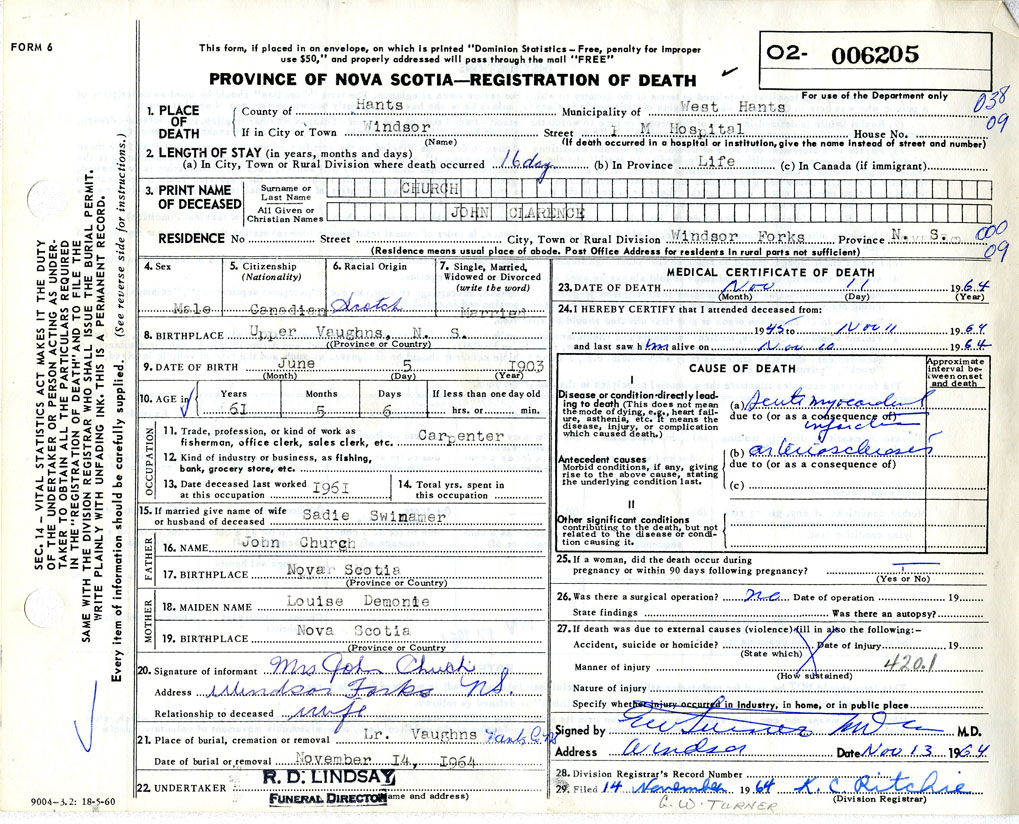 FORM 6
This form, if placed in an envelope, on which is printed "Dominion Statistics – Free, penalty for improper
use $50," and properly addressed will pass through the mail "FREE"
PROVINCE OF NOVA SCOTIA—REGISTRATION OF DEATH
02- 006205
For use of the Department only
038
09
SEC. 14 – VITAL STATISTICS ACT MAKES IT THE DUTY
OF THE UNDERTAKER OR PERSON ACTING AS UNDER-
TAKER TO OBTAIN ALL THE PARTICULARS REQUIRED
IN THE "REGISTRATION OF DEATH" AND TO FILE THE
SAME WITH THE DIVISION REGISTRAR WHO SHALL ISSUE THE BURIAL PERMIT.
WRITE PLAINLY WITH UNFADING INK. THIS IS A PERMANENT RECORD.
Every item of information should be carefully supplied. (See reverse side for instructions.)
1. PLACE OF DEATH
County of Hants Municipality of West Hants
If in City or Town Windsor Street P M Hospital House No.
(Name) (If death occurred in a hospital or institution, give the name instead of street and number)
2. LENGTH OF STAY (in years, months and days)
(a) In City, Town or Rural Division where death occurred 16 day (b) In Province Life (c) In Canada (if immigrant)
3. PRINT NAME OF DECEASED
Surname or Last Name CHURCH
All Given or Christian Names JOHN CLARENCE
RESIDENCE No Street City, Town or Rural Division Windsor Forks Province N. S.
000
09
(Residence means usual place of abode. Post Office Address for residents in rural parts not sufficient)
4. Sex Male
5. Citizenship (Nationality) Canadian
6. Racial Origin Scotch
7. Single, Married, Widowed or Divorced (write the word) Married
8. BIRTHPLACE Upper Vaughns, N. S.
(Province or Country)
9. DATE OF BIRTH June 5 1903
(Month) (Day) (Year)
10. AGE in Years 61 Months 5 Days 6 If less than one day old hrs. or min.
OCCUPATION
11. Trade, profession, or kind of work as
fisherman, office clerk, sales clerk, etc. Carpenter
12. Kind of industry or business, as fishing,
bank, grocery store, etc.
13. Date deceased last worked at this occupation 1961
14. Total yrs. spent in this occupation
15. If married give name of wife
or husband of deceased Sadie Swinamer
FATHER
16. NAME John Church
17. BIRTHPLACE Novar Scotia
(Province or Country)
MOTHER
18. MAIDEN NAME Louise Demonie
19. BIRTHPLACE Nova Scotia
(Province or Country)
20. Signature of informant Mrs John Church
Address Windsor Forks NS.
Relationship to deceased wife
21. Place of burial, cremation or removal Lr. Vaughns Hants Co NS
Date of burial or removal November 14, 1964
22. UNDERTAKER R. D. LINDSAY
FUNERAL DIRECTOR
me and address)
9004–3.2: 18-5-60
MEDICAL CERTIFICATE OF DEATH
23. DATE OF DEATH Nov 11 1964
(Month) (Day) (Year)
24. I HEREBY CERTIFY that I attended deceased from:
1945 to Nov 11 1964
and last saw him alive on Nov 10 1964
CAUSE OF DEATH
Approximate interval between onset and death
I
Disease or condition directly lead-
ing to death (This does not mean
the mode of dying, e.g., heart fail-
ure, asthenia, etc. It means the
disease, injury, or complication
which caused death.)
(a) Acute myocardial
due to (or as a consequence of)
infarction
Antecedent causes
Morbid conditions, if any, giving
rise to the above cause, stating
the underlying condition last.
(b) arteriosclerosis
due to (or as a consequence of)
(c)
II
Other significant conditions
contributing to the death, but not
related to the disease or condi-
tion causing it.
25. If a woman, did the death occur during
pregnancy or within 90 days following pregnancy?
(Yes or No)
26. Was there a surgical operation? no Date of operation 19
State findings Was there an autopsy?
27. If death was due to external causes (violence) fill in also the following:–
Accident, suicide or homicide? Date of injury 19
(State which)
Manner of injury 420.1
(How sustained)
Nature of injury
Specify whether injury occurred in Industry, in home, or in public place
Signed by GW Turner M.D.
Address Windsor Date Nov 13 1964
28. Division Registrar's Record Number
29. Filed 14 November 1964 K. C. Ritchie
(Division Registrar)
G. W. TURNER